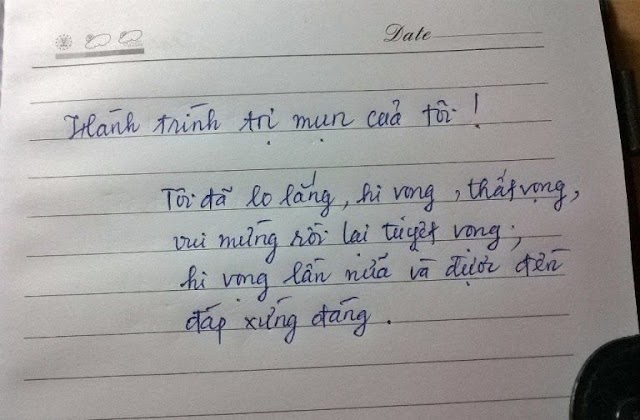 Date
Hành trình trị mụn của tôi!
Tôi đã lo lắng, hi vong, thất vọng,
vui mừng rồi lại tuyệt vong;
hi vọng lần nữa và được đền
đáp xứng đáng.